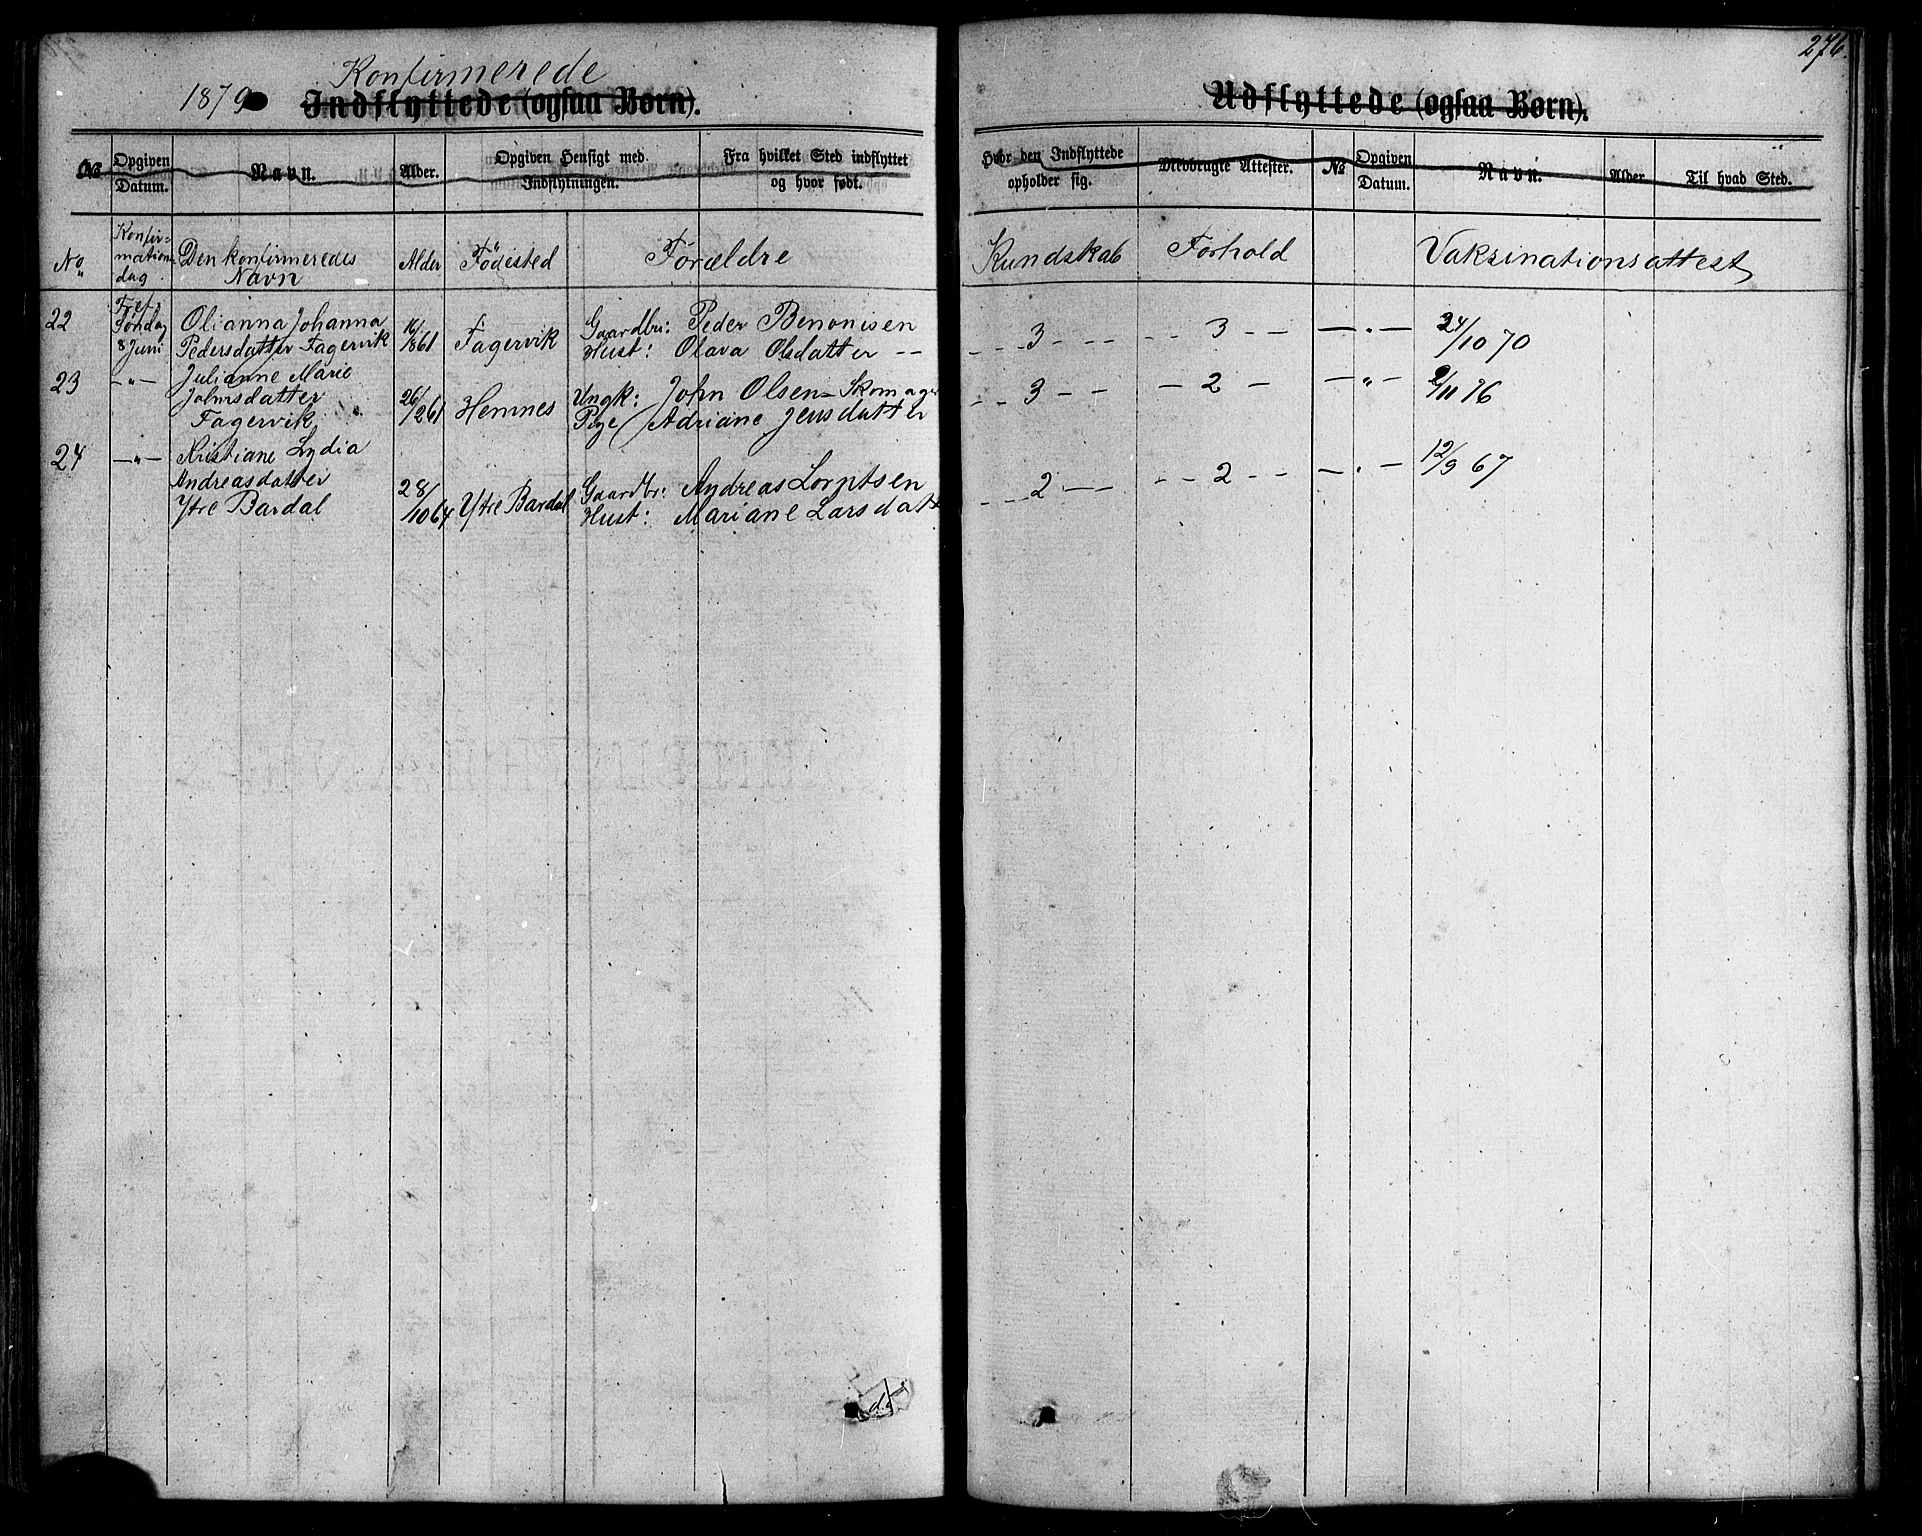 276.
1879 Konfirmerede
Indflyttede (ogsaa Børn).
Udflyttede (ogsaa Børn).
No Opgiven Datum. Navn. Alder. Opgiven Hensigt med Indflytningen. Fra hvilket Sted indflyttet og hvor født.
Hvor den Indflyttede opholder sig. Medbragte Attester. No Opgiven Datum. Navn. Alder. Til hvad Sted.
No Konfirmationsdag. Den konfirmeredes Navn Alder Födested Forældre
Kundskab Forhold Vaksinationsattest
22 Tref. Söndag Olianna Johanna 16/ Fagervik Gaardbr: Peder Benonisen
8 Juni Pedersdatter Fagervik 1861 Hust: Olava Olsdatter --
- - 3 - - - - 3 - - - " - 24/10 70
23 -"- Julianne Marie
Johnsdatter 26/261 Hemnes Ungk: John Olsen - Skomager
Fagervik Pige Adriane Jensdatter
- - 3 - - - 2 - - " - 2/11 76
24 -"- Kristiane Lydia
Andreasdatter 28/1064 Ytre Bardal Gaardbr: Andreas Lorntsen
Ytre Bardal Hust: Mariane Larsdatter
- - 2 - - - - 2 - - - " - 12/9 67